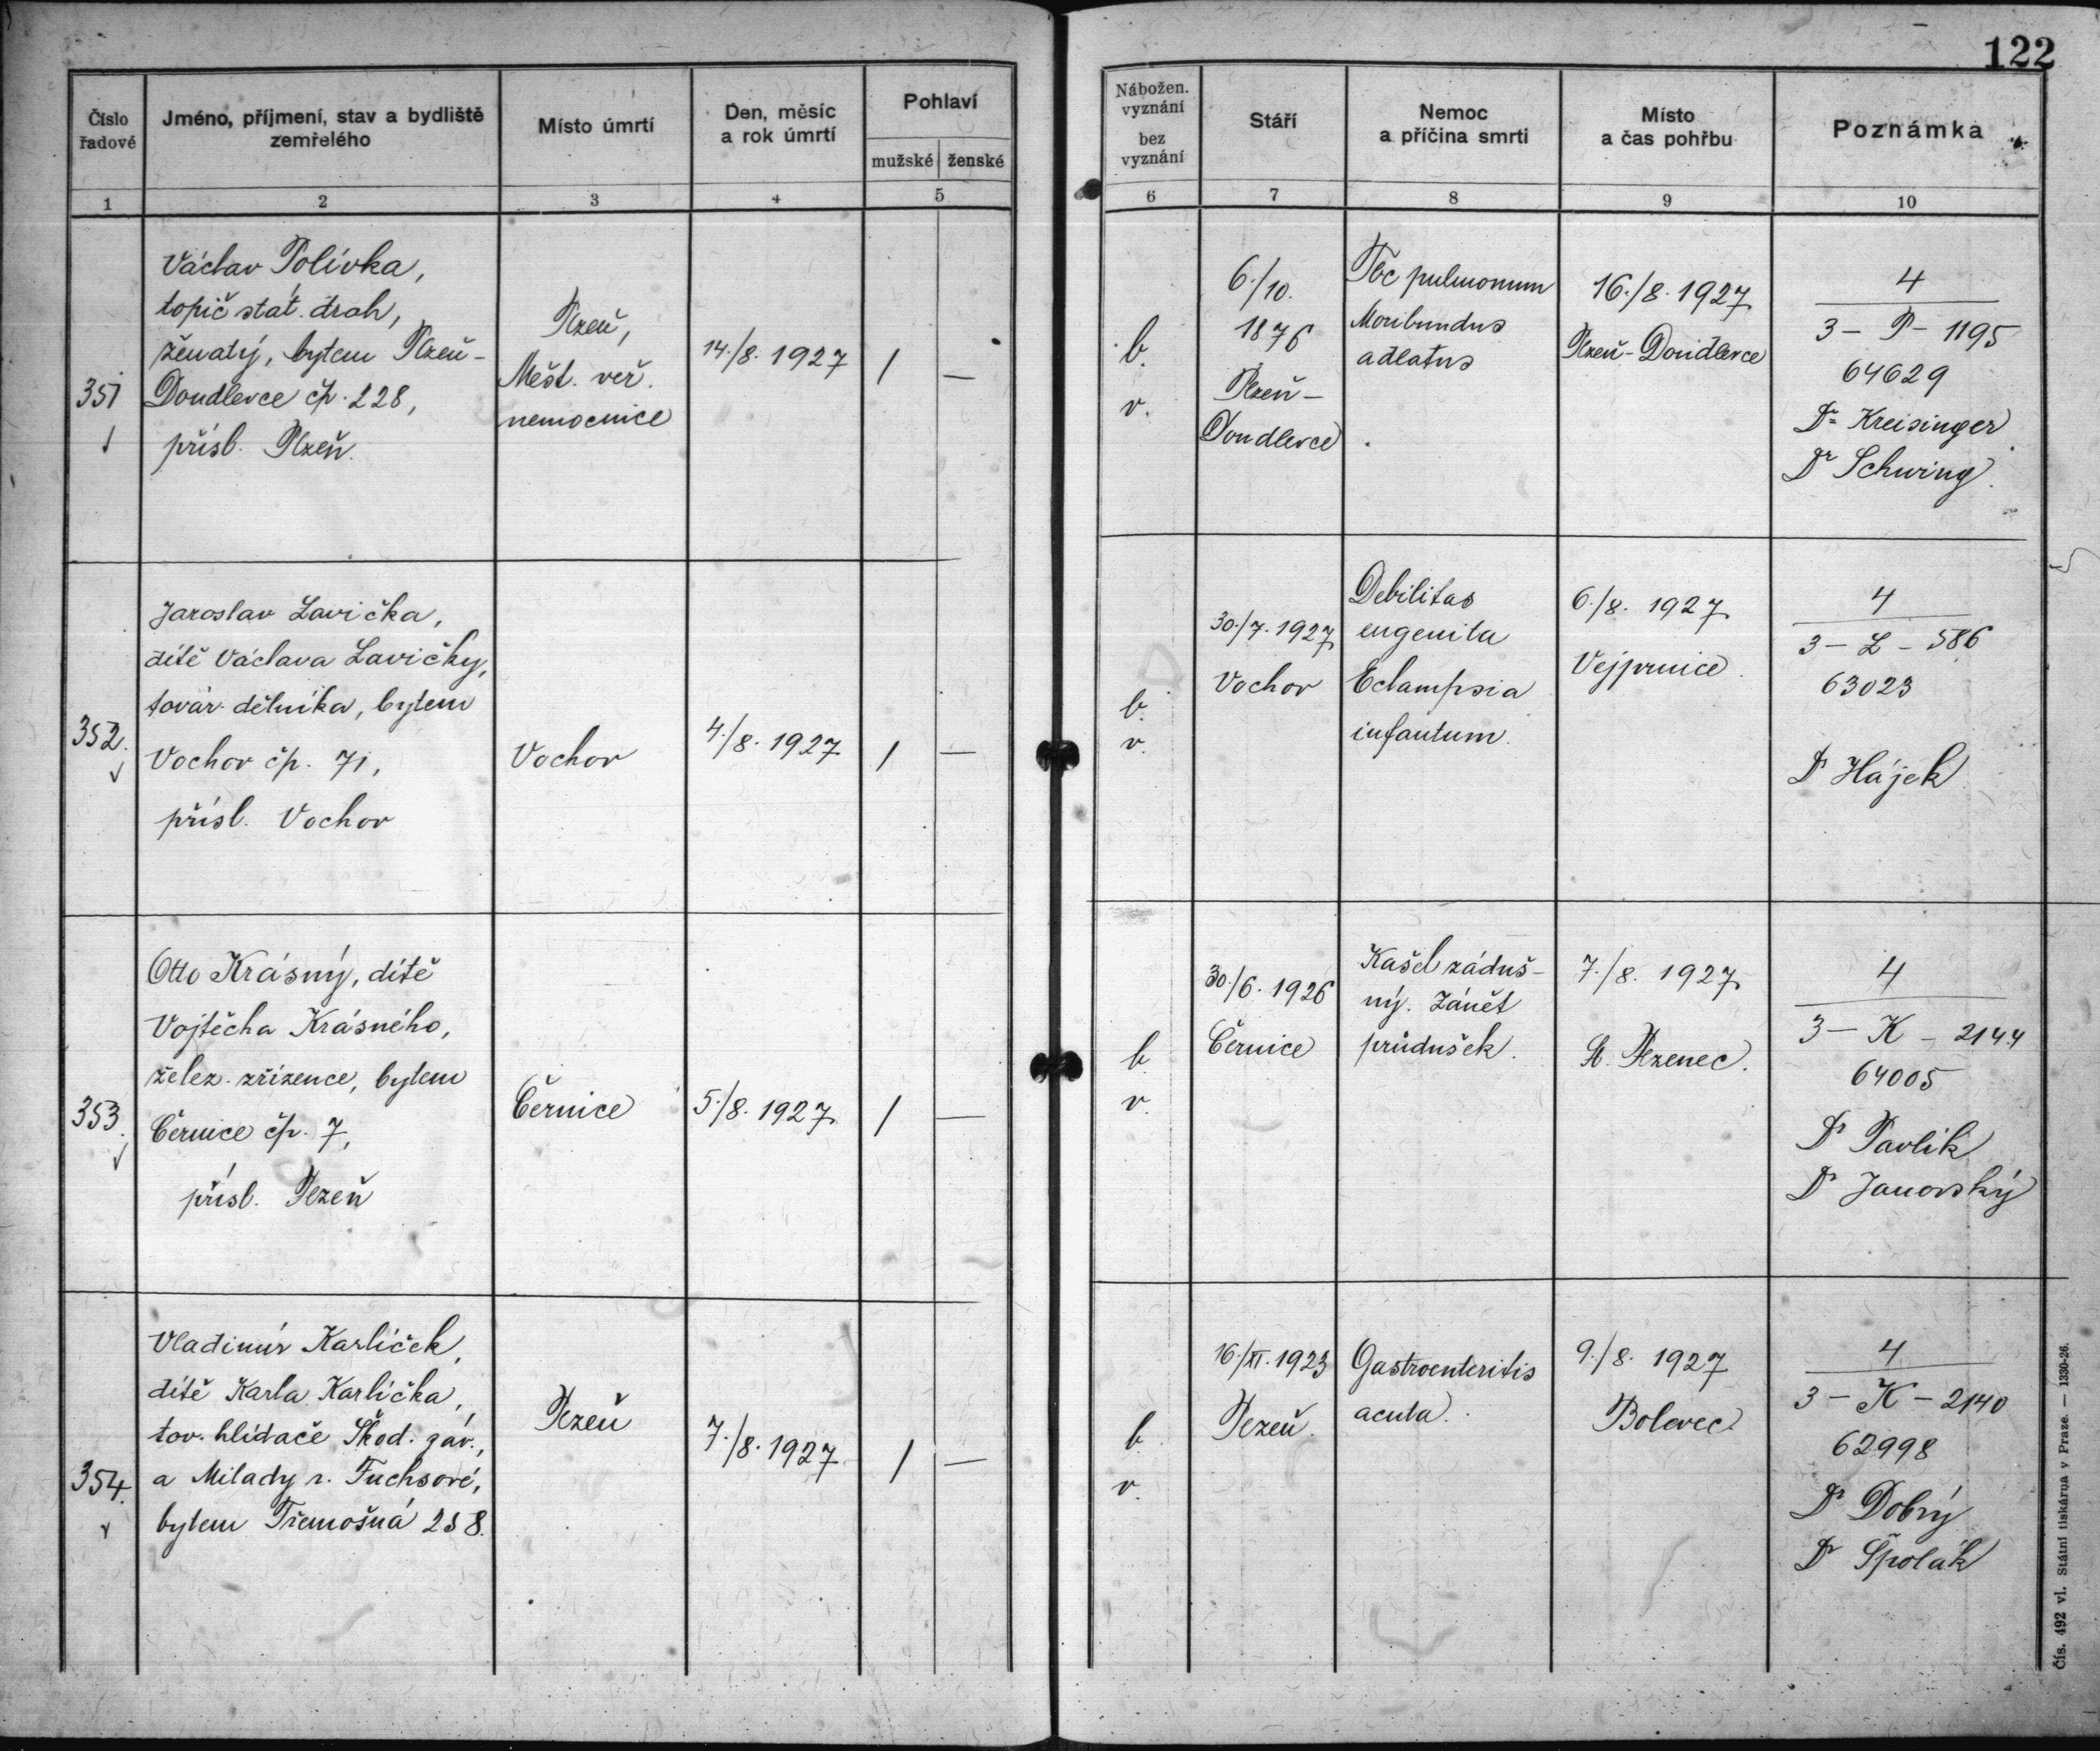 122
Číslo
řadové
Jméno, příjmení, stav a bydliště
zemřelého
Místo úmrtí
Den, měsíc
a rok úmrtí
Pohlaví
mužské ženské
Nábožen.
vyznání
bez
vyznání
Stáří
Nemoc
a příčina smrti
Místo
a čas pohřbu
Poznámka
1 2 3 4 5 6 7 8 9 10
351
Václav Polívka,
topič stát. drah,
ženatý, bytem Plzeň-
Doudlevce čp. 228,
přísl. Plzeň.
Plzeň,
Měst. veř.
nemocnice
14./8. 1927
/ —
b.
v.
6./10.
1876
Plzeň-
Doudlevce
Tbc pulmonum
Moribundus
adlatus
16./8. 1927
Plzeň-Doudlevce
4
3 - P - 1195
64629
Dr Kreisinger
Dr Schwing.
352.
Jaroslav Lavička,
dítě Václava Lavičky,
továr. dělníka, bytem
Vochov čp. 71,
přísl. Vochov
Vochov
4./8. 1927
/ —
b.
v.
30./7. 1927
Vochov
Debilitas
engenita
Eclampsia
infantum.
6./8. 1927
Vejprnice.
4
3 - L - 586
63023
Dr Hájek
353.
Otto Krásný, dítě
Vojtěcha Krásného,
želez. zřízence, bytem
Černice čp. 7,
přísl. Plzeň
Černice
5./8. 1927
/ —
b.
v.
30./6. 1926
Černice
Kašel záduš-
ný. Zánět
průdušek.
7./8. 1927
St. Plzenec.
4
3 - K - 2144
64005
Dr Pavlík
Dr Janovský
354.
Vladimír Karlíček,
dítě Karla Karlíčka,
tov. hlídače Škod. záv.,
a Milady r. Fuchsové,
bytem Třemošná 258.
Plzeň
7./8. 1927
/ —
b.
v.
16./XI. 1923
Plzeň.
Gastroenteritis
acuta.
9./8. 1927
Bolevec.
4
3 - K - 2140
62998
Dr Dobrý
Dr Špolák
Čís. 492 vl. Státní tiskárna v Praze. — 1330-26.